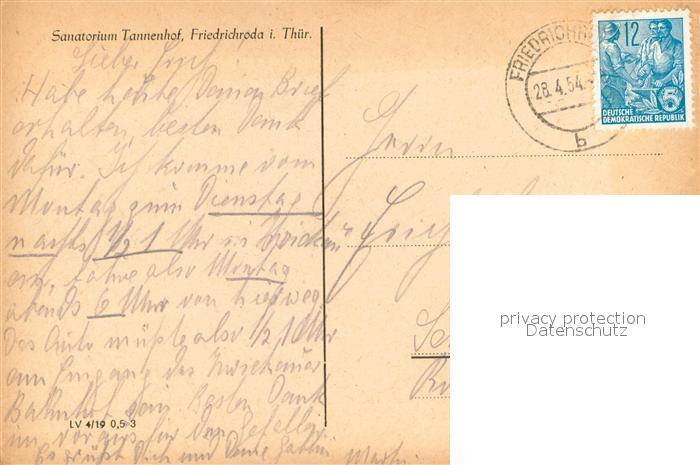 Sanatorium Tannenhof, Friedrichroda i. Thür.
FRIEDRICHR
28.4.54.
b
12
5
DEUTSCHE
DEMOKRATISCHE REPUBLIK
Lieber Erich
Habe heute Deinen Brief
erhalten, besten Dank
dafür. Ich komme vom
Montag zum Dienstag
nachts 1/2 1 Uhr in Zwickau
an, fahre also Montag
abends 6 Uhr von hier weg.
Das Auto müßte also 1/2 1 Uhr
am Eingang des Zwickauer
Bahnhof sein. Besten Dank
im voraus für den Gefallen
Es grüßt Dich und Deine
Herrn
Erich
LV 4/19 0,5 3
privacy protection
Datenschutz